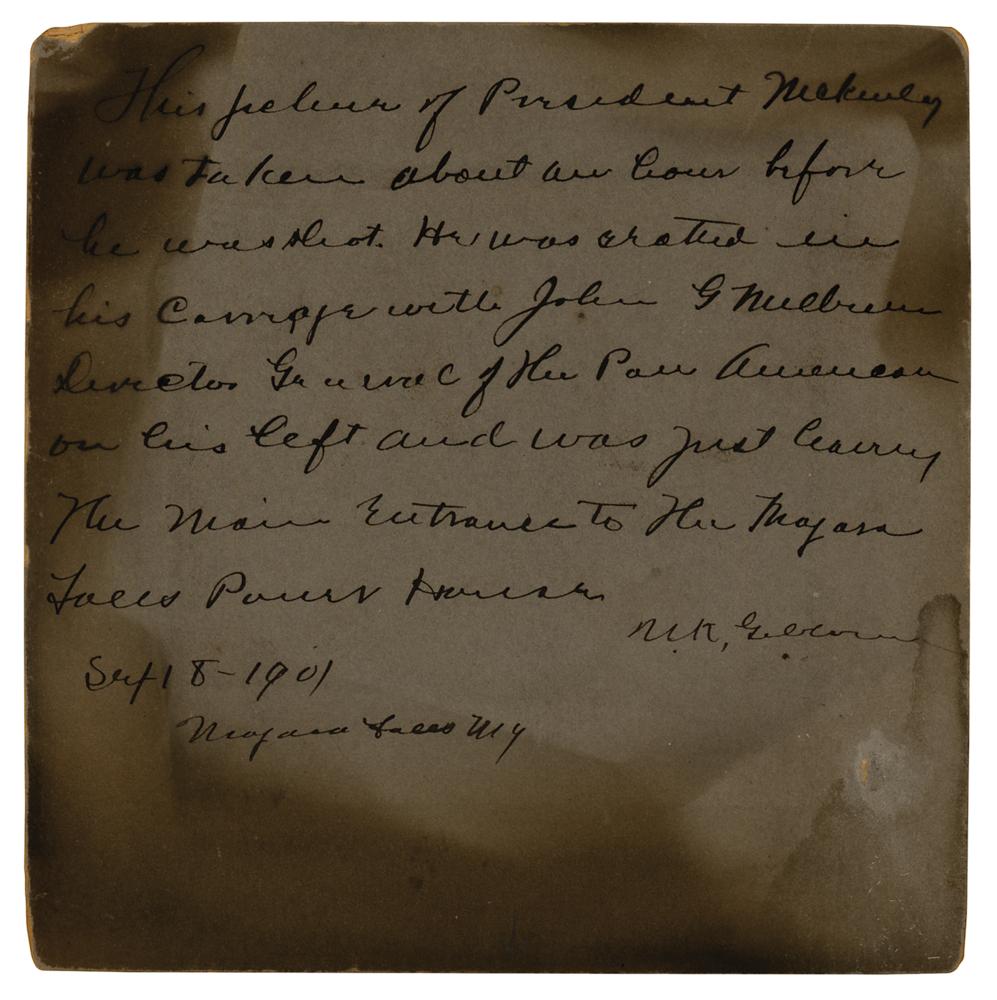 This picture of President McKinley
was taken about an hour before
he was shot. He was seated in
his Carriage with John G Milburn
Director General of the Pan American
on his left and was just leaving
The Main Entrance to The Niagara
Falls Power House
M.K,
Sept 8-1901
Niagara Falls NY